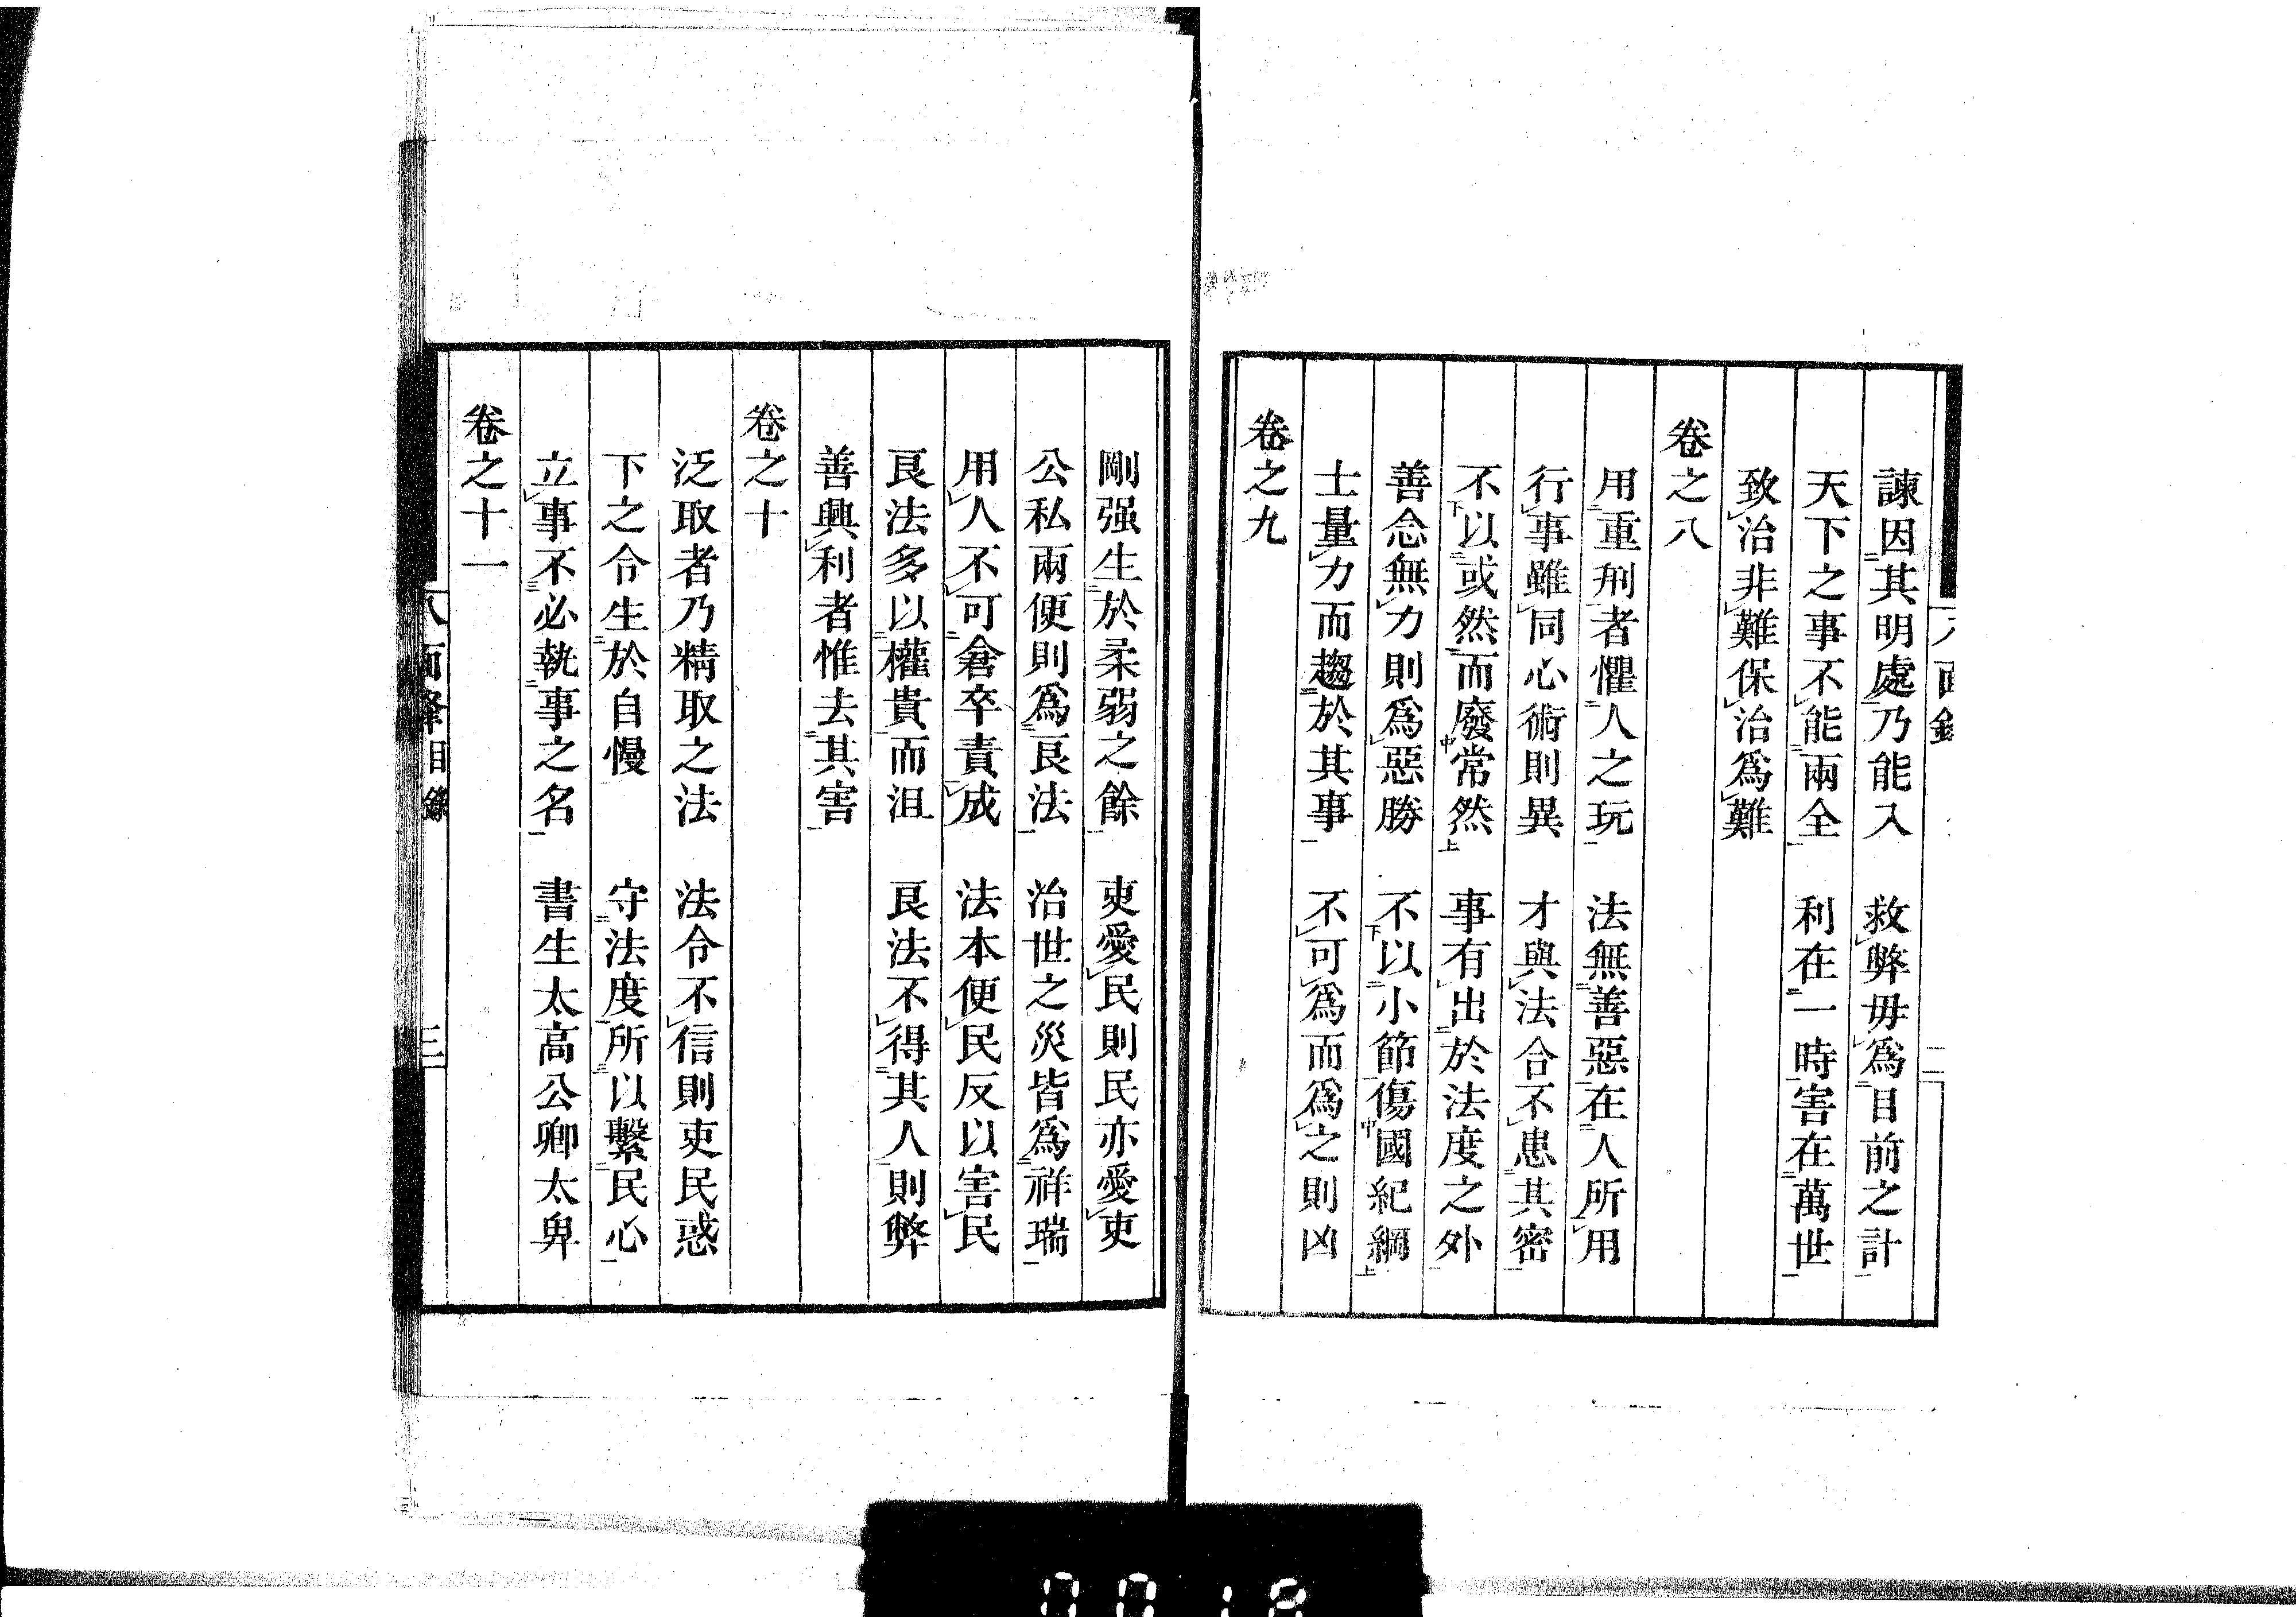 諫因其明處乃能入　救弊毋爲目前之計
天下之事不能兩全　利在一時害在萬世
致治非難保治爲難
卷之八
用重刑者懼人之玩　法無善惡在人所用
行事雖同心術則異　才與法合不患其密
不以或然而廢常然　事有出於法度之外
善念無力則爲惡勝　不以小節傷國紀綱
士量力而趨於其事　不可爲而爲之則凶
卷之九
剛强生於柔弱之餘　吏愛民則民亦愛吏
公私兩便則爲良法　治世之災皆爲祥瑞
用人不可倉卒責成　法本便民反以害民
良法多以權貴而沮　良法不得其人則弊
善興利者惟去其害
卷之十
泛取者乃精取之法　法令不信則吏民惑
下之令生於自慢　守法度所以繫民心
立事不必執事之名　書生太高公卿太卑
卷之十一
八面鋒目錄　三